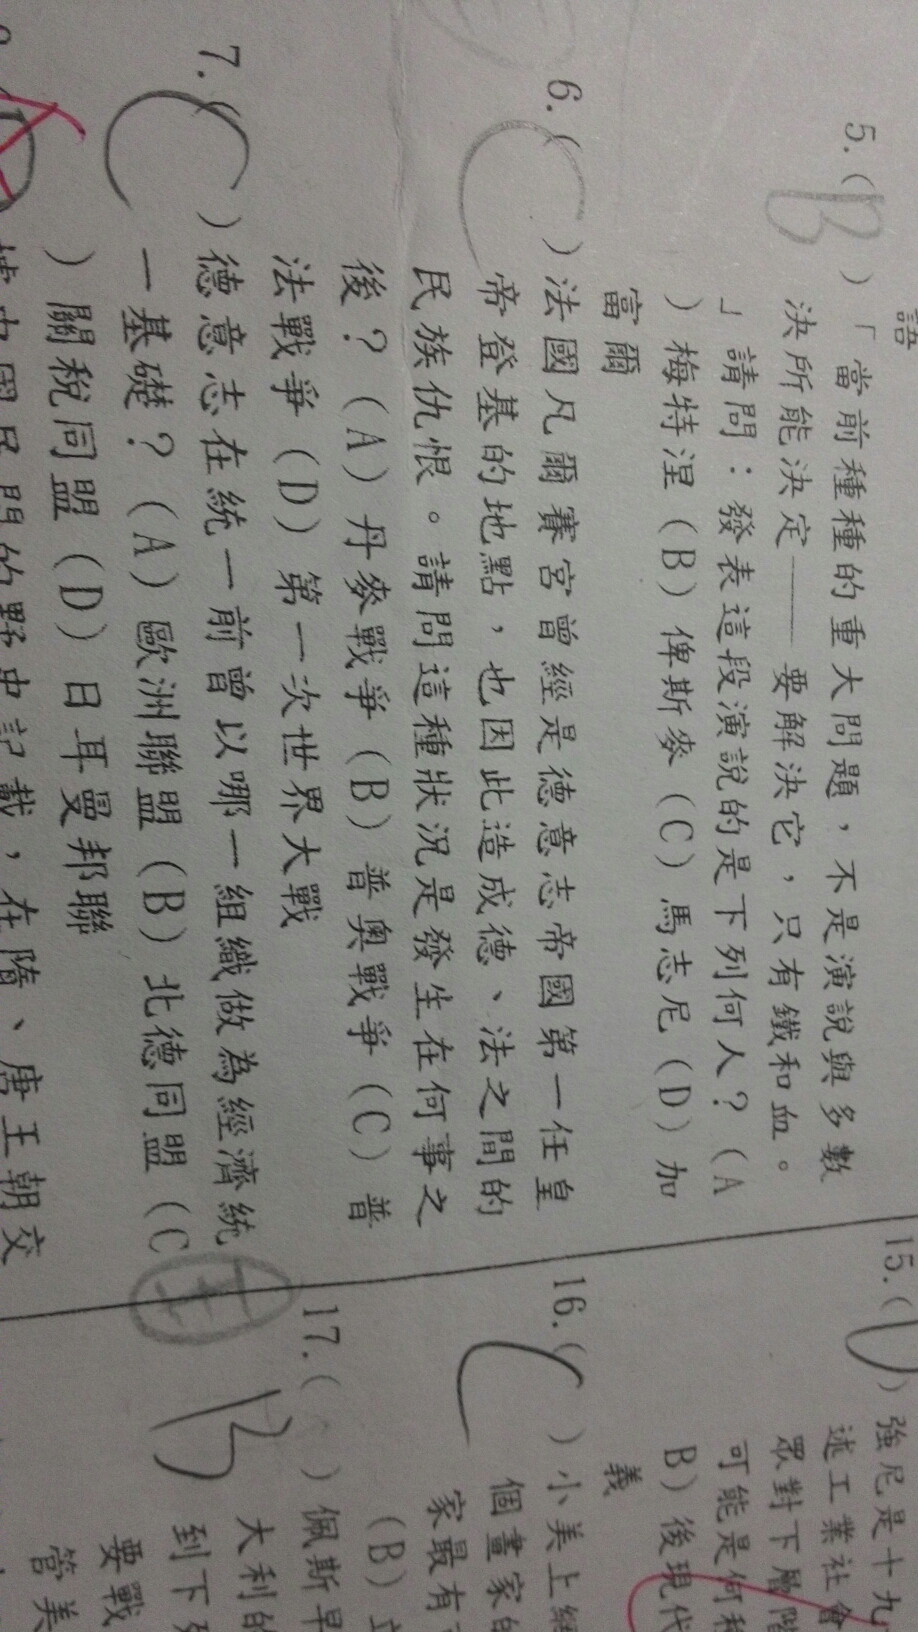 語
5.(B)「當前種種的重大問題，不是演說與多數
決所能決定——要解決它，只有鐵和血。
」請問：發表這段演說的是下列何人？(A
)梅特涅(B)俾斯麥(C)馬志尼(D)加
富爾
6.(C)法國凡爾賽宮曾經是德意志帝國第一任皇
帝登基的地點，也因此造成德、法之間的
民族仇恨。請問這種狀況是發生在何事之
後？(A)丹麥戰爭(B)普奧戰爭(C)普
法戰爭(D)第一次世界大戰
7.(C)德意志在統一前曾以哪一組織做為經濟統
一基礎？(A)歐洲聯盟(B)北德同盟(C
)關稅同盟(D)日耳曼邦聯
中國民間的野史記載，在隋、唐王朝交
15.( )強尼是十九
述工業社會
眾對下層階
可能是何種
B)後現代
義
16.(C)小美上網
個畫家的
家最有
(B)立
17.(B)佩斯早
大利的
到下列
要戰
管美